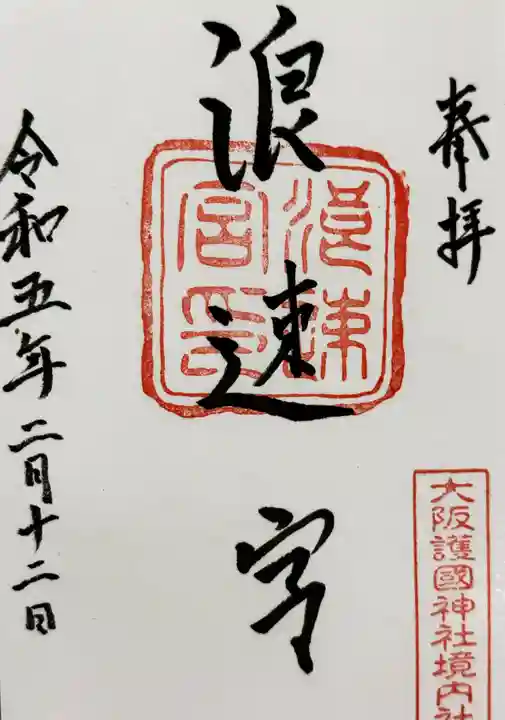 奉拝
大阪護國神社境内社
浪速宮
浪速宮印
令和五年二月十二日